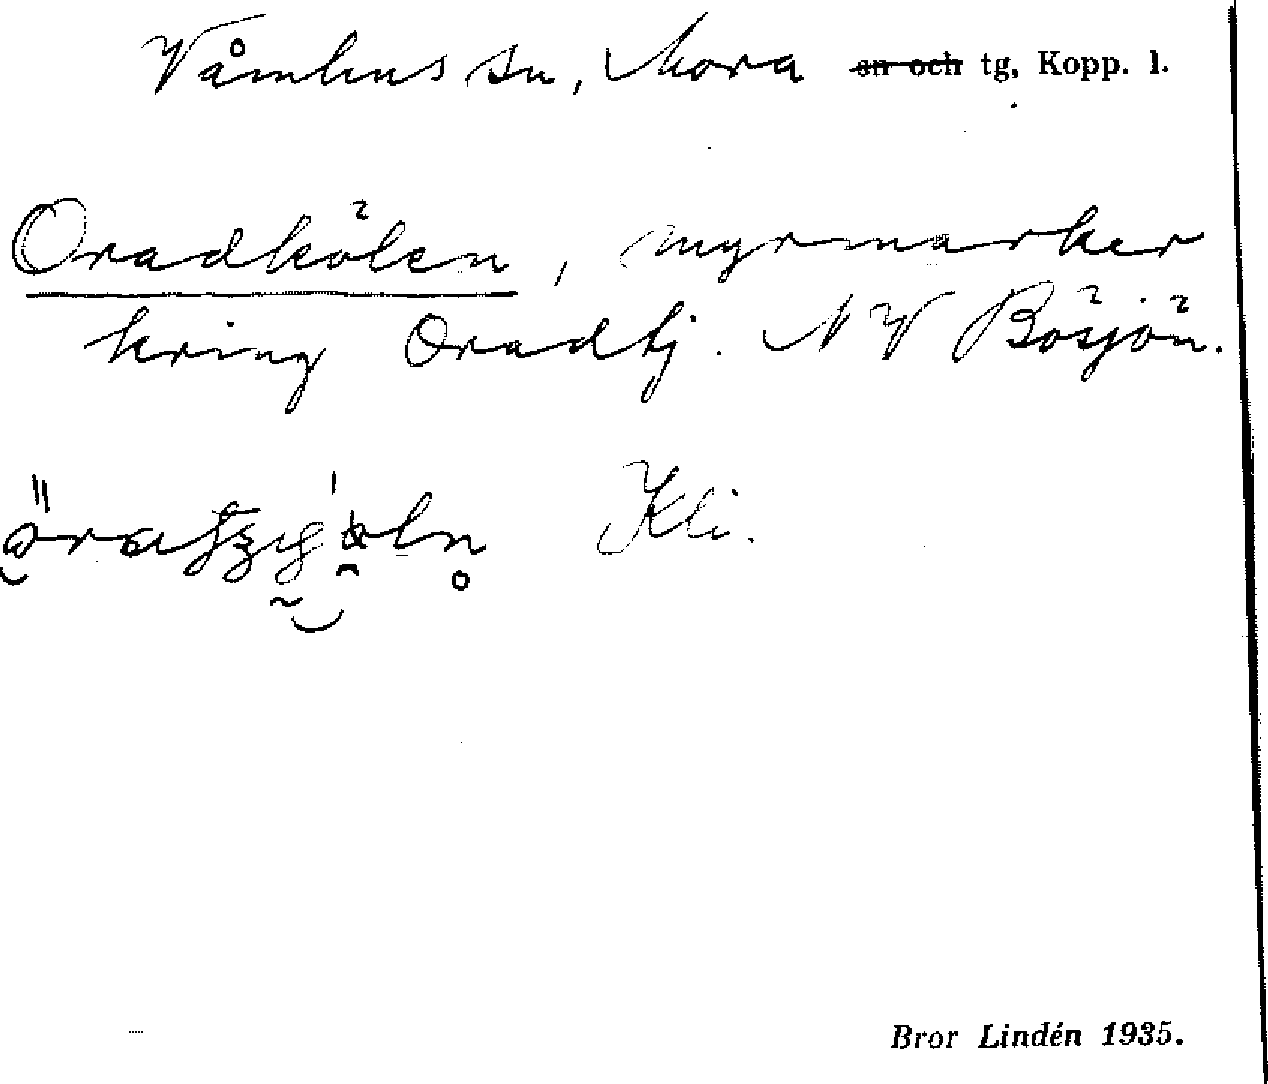 Våmhus sn, Mora sn och tg, Kopp. l.
Oradkölen, myrmarker
kring Oradtj. NV Bösjön.
Kli.
Bror Lindén 1935.